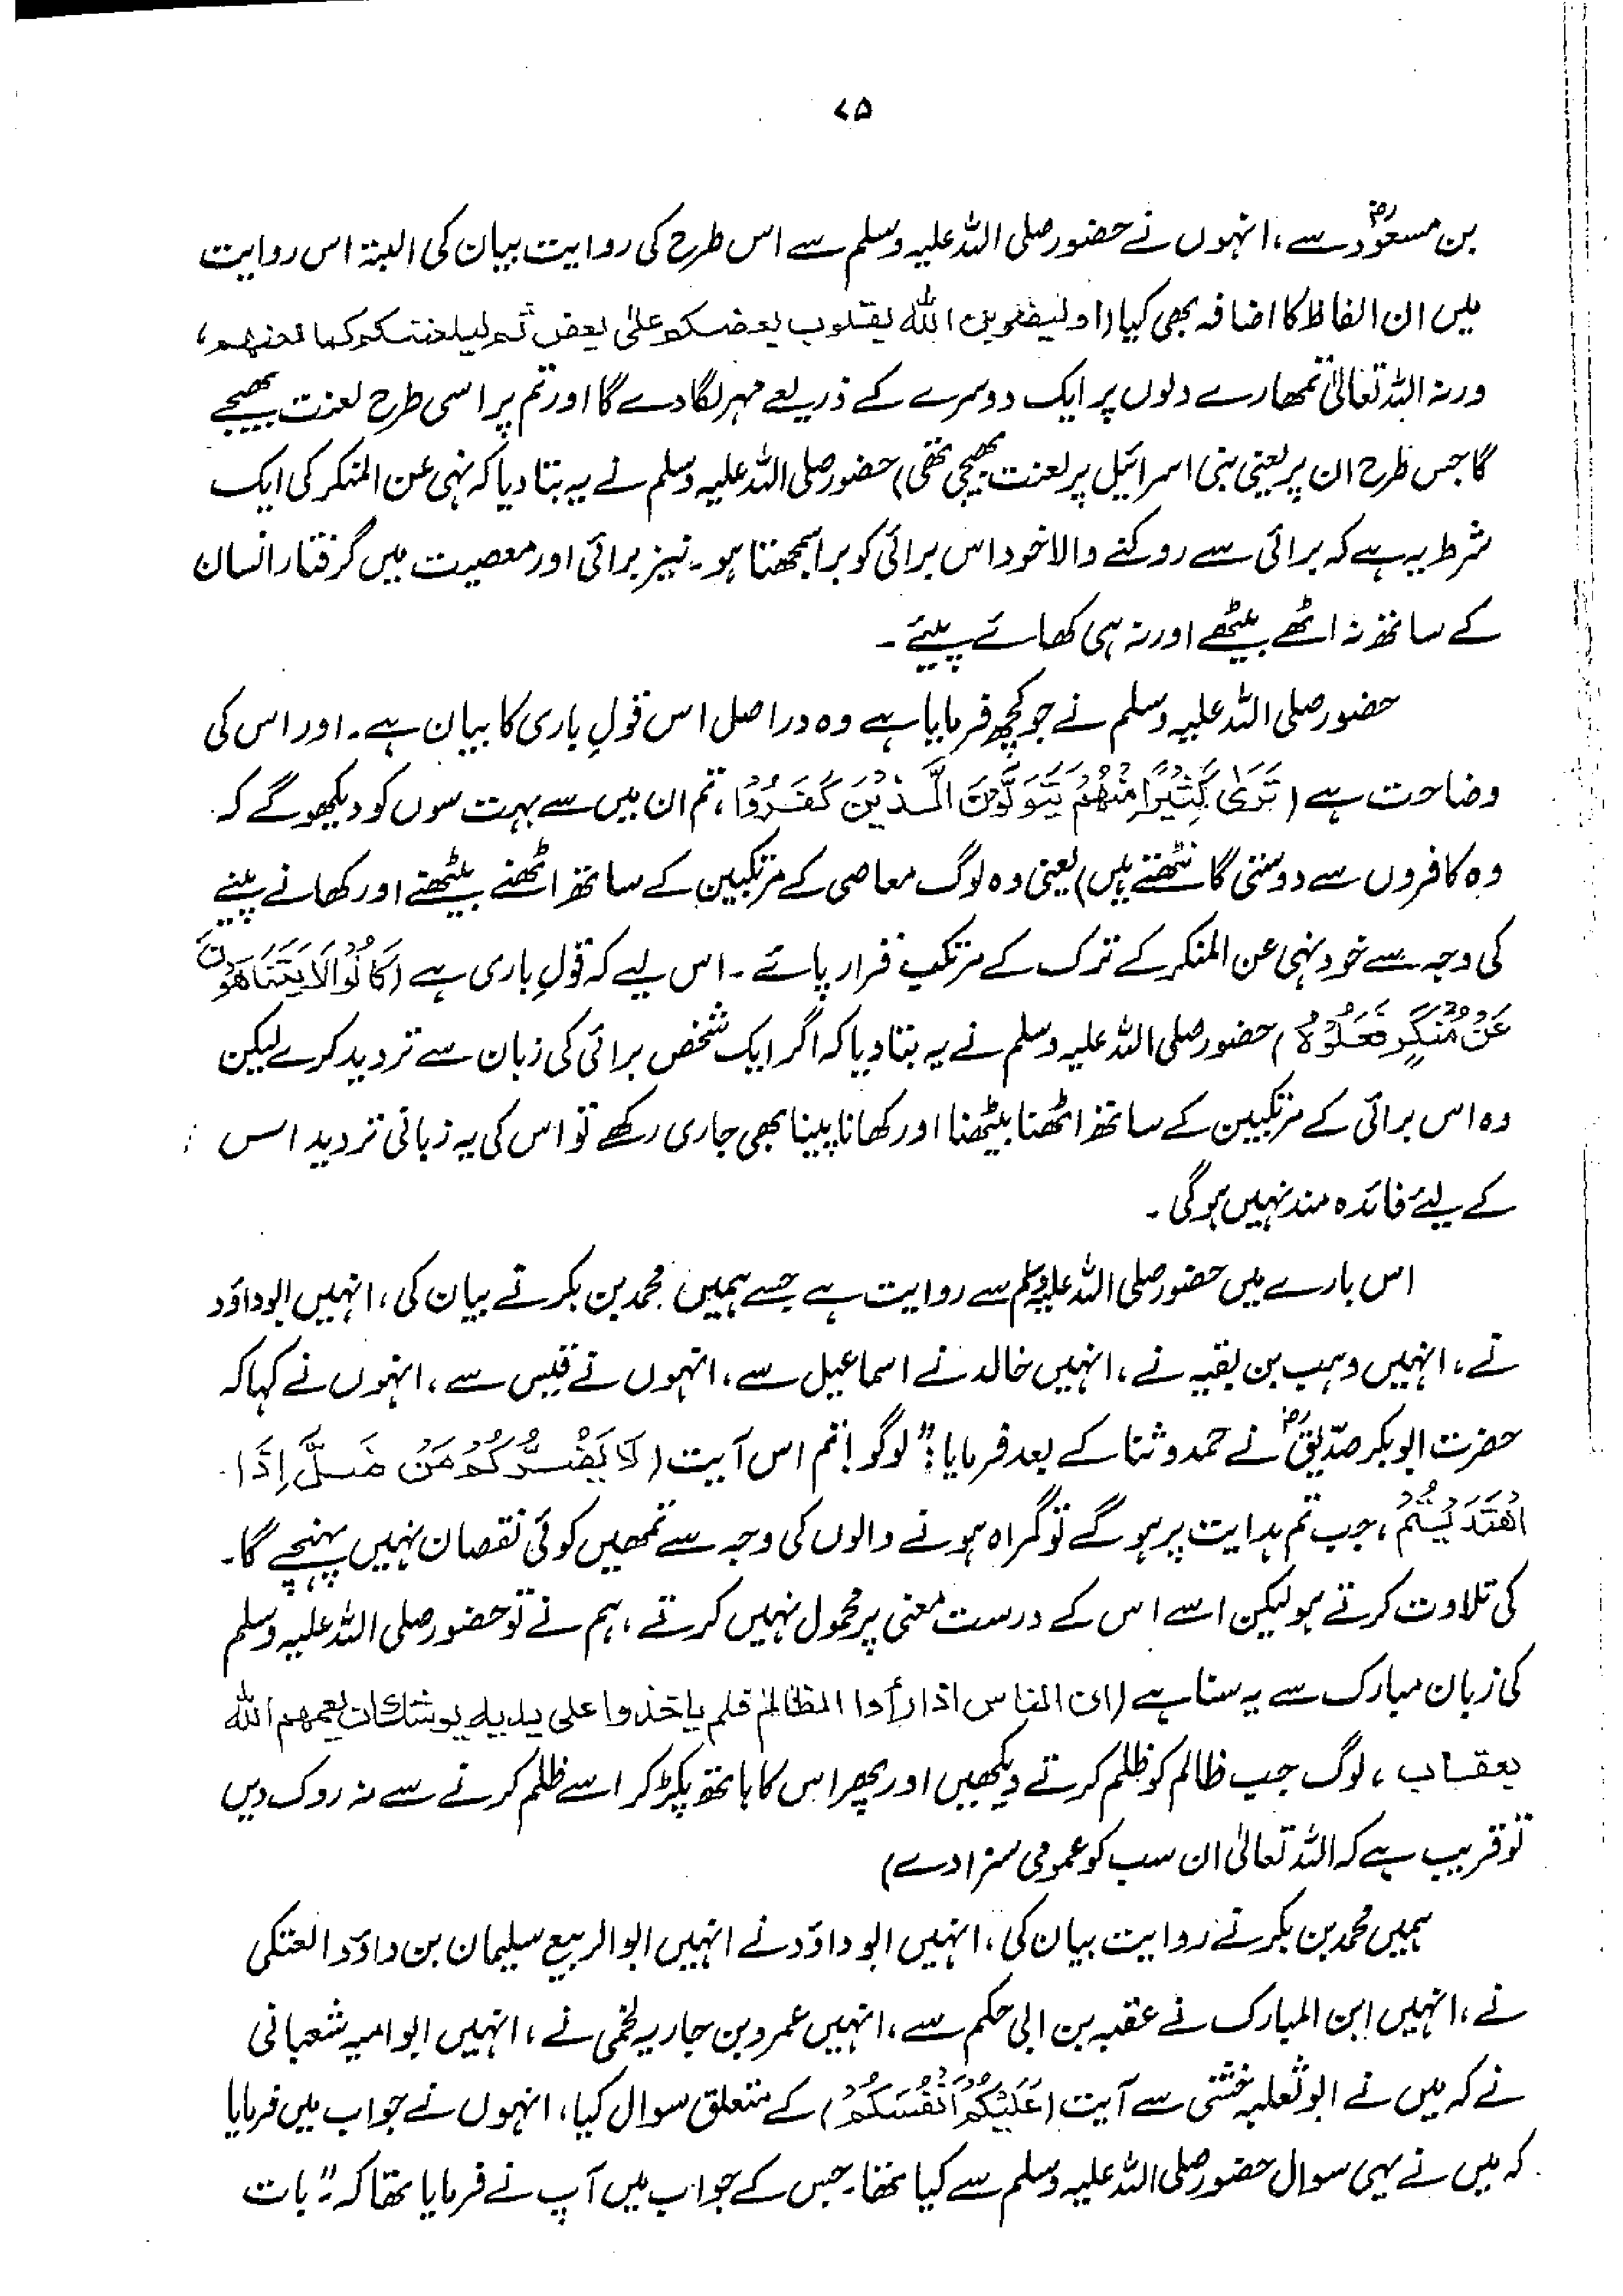 ۷۵
بن مسعودؓ سے، انہوں نے حضور صلی اللہ علیہ وسلم سے اس طرح کی روایت بیان کی البتہ اس روایت
میں ان الفاظ کا اضافہ بھی کیا (او لیضربن اللہ بقلوب بعضکم علیٰ بعض ثم لیلعنتکم کما لعنھم،
ورنہ اللہ تعالیٰ تمھارے دلوں پر ایک دوسرے کے ذریعے مہر لگا دے گا اور تم پر اسی طرح لعنت بھیجے
گا جس طرح ان پر یعنی بنی اسرائیل پر لعنت بھیجی تھی) حضور صلی اللہ علیہ وسلم نے یہ بتا دیا کہ نہی عن المنکر کی ایک
شرط یہ ہے کہ برائی سے روکنے والا خود اس برائی کو برا سمجھتا ہو۔ نیز برائی اور معصیت میں گرفتار انسان
کے ساتھ نہ اٹھے بیٹھے اور نہ ہی کھائے پیئے۔
حضور صلی اللہ علیہ وسلم نے جو کچھ فرمایا ہے وہ دراصل اس قولِ باری کا بیان ہے۔ اور اس کی
وضاحت ہے (تَرٰی کَثِیْرًا مِّنْھُمْ یَتَوَلَّوْنَ الَّذِیْنَ کَفَرُوْا، تم ان میں سے بہت سوں کو دیکھو گے کہ
وہ کافروں سے دوستی گانٹھتے ہیں) یعنی وہ لوگ معاصی کے مرتکبین کے ساتھ اٹھنے بیٹھنے اور کھانے پینے
کی وجہ سے خود نہی عن المنکر کے ترک کے مرتکب قرار پائے۔ اس لیے کہ قولِ باری ہے (کَانُوْا لَا یَتَنَاھَوْنَ
عَنْ مُّنْکَرٍ فَعَلُوْہُ) حضور صلی اللہ علیہ وسلم نے یہ بتا دیا کہ اگر ایک شخص برائی کی زبان سے تردید کرے لیکن
وہ اس برائی کے مرتکبین کے ساتھ اٹھنا بیٹھنا اور کھانا پینا بھی جاری رکھے تو اس کی یہ زبانی تردید اس
کے لیے فائدہ مند نہیں ہوگی۔
اس بارے میں حضور صلی اللہ علیہ وسلم سے روایت ہے جسے ہمیں محمد بن بکر نے بیان کی، انہیں ابو داؤد
نے، انہیں وہب بن بقیہ نے، انہیں خالد نے اسماعیل سے، انہوں نے قیس سے، انہوں نے کہا کہ
حضرت ابوبکر صدّیقؓ نے حمد و ثنا کے بعد فرمایا: "لوگو! تم اس آیت (لَا یَضُرُّکُمْ مَنْ ضَلَّ اِذَا
اھْتَدَیْتُمْ، جب تم ہدایت پر ہو گے تو گمراہ ہونے والوں کی وجہ سے تمھیں کوئی نقصان نہیں پہنچے گا۔
کی تلاوت کرتے ہو لیکن اسے اس کے درست معنی پر محمول نہیں کرتے، ہم نے تو حضور صلی اللہ علیہ وسلم
کی زبان مبارک سے یہ سنا ہے (ان الناس اذا رأوا الظالم فلم یاخذوا علی یدیہ یوشک ان یعمھم اللہ
بعقاب، لوگ جب ظالم کو ظلم کرتے دیکھیں اور پھر اس کا ہاتھ پکڑ کر اسے ظلم کرنے سے نہ روک دیں
تو قریب ہے کہ اللہ تعالیٰ ان سب کو عمومی سزا دے)
ہمیں محمد بن بکر نے روایت بیان کی، انہیں ابو داؤد نے انہیں ابوالربیع سلیمان بن داؤد العتکی
نے، انہیں ابن المبارک نے عقبہ بن ابی حکم سے، انہیں عمرو بن جاریہ لخمی نے، انہیں ابو امیہ شعبانی
نے کہ میں نے ابو ثعلبہ خشنی سے آیت (عَلَیْکُمْ اَنْفُسَکُمْ) کے متعلق سوال کیا، انہوں نے جواب میں فرمایا
کہ میں نے یہی سوال حضور صلی اللہ علیہ وسلم سے کیا تھا۔ جس کے جواب میں آپ نے فرمایا تھا کہ: "بات